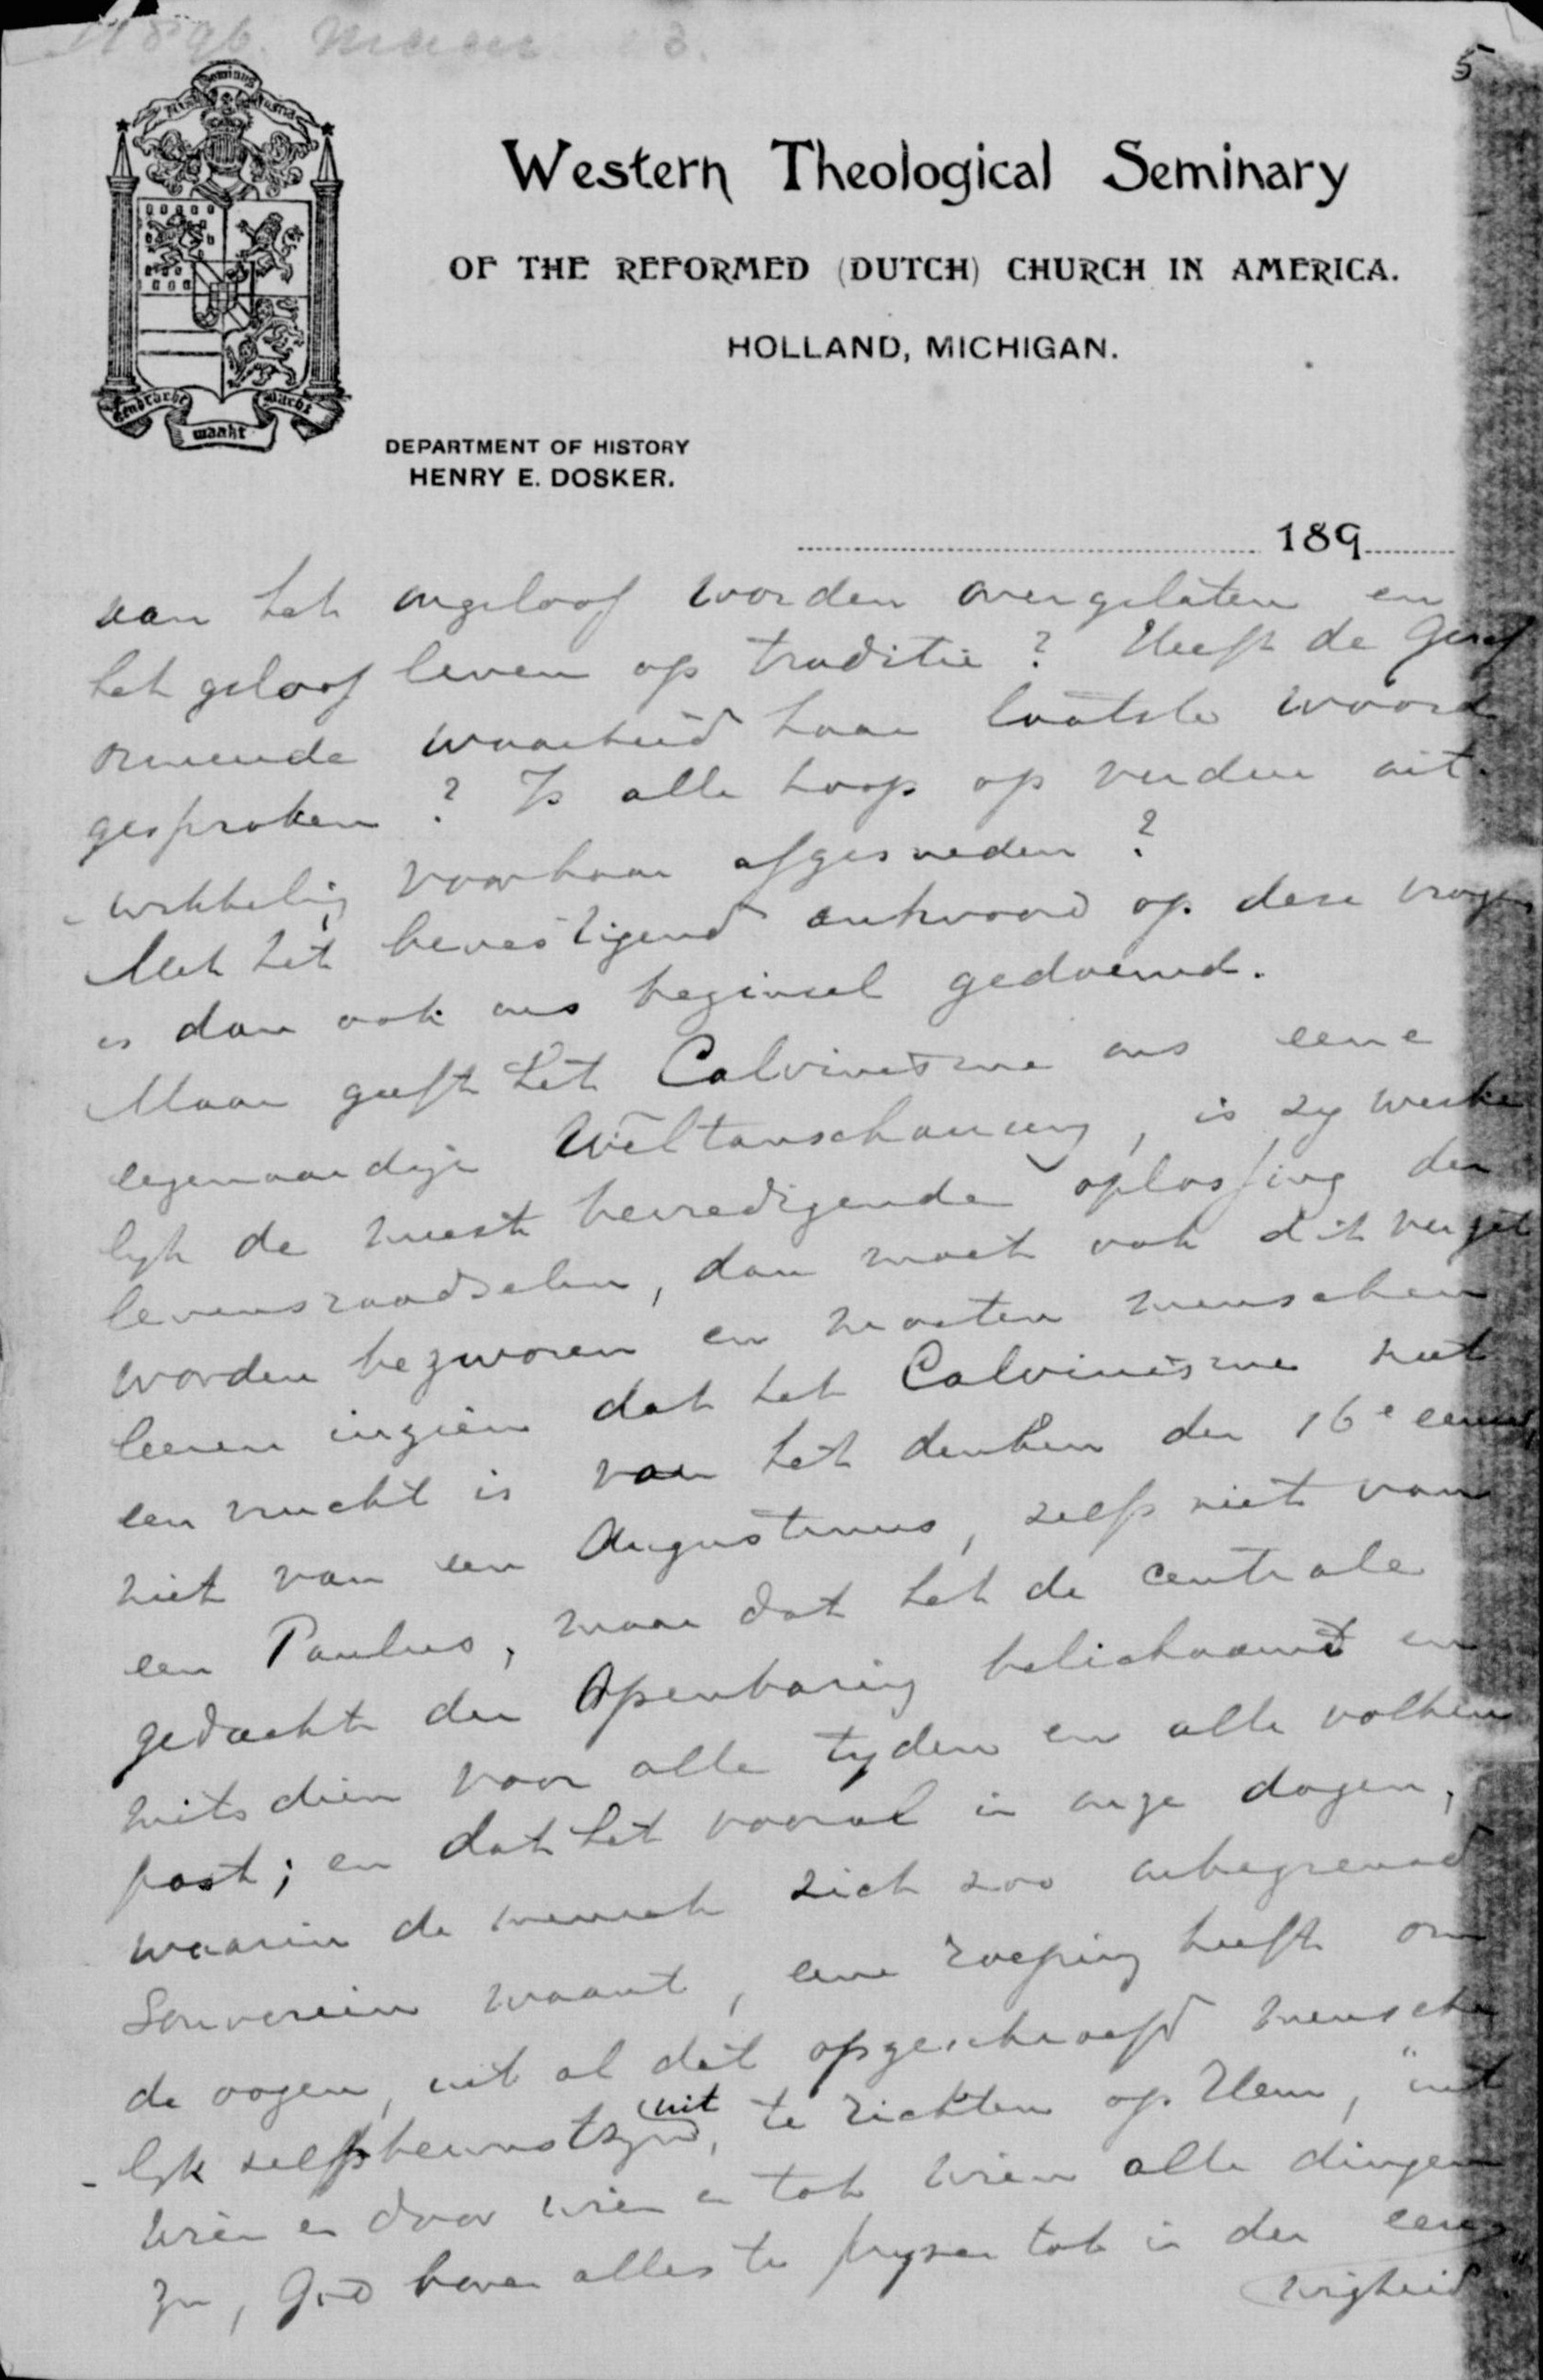 1896. 3.
5
Dominus
Eendracht maakt macht
Western Theological Seminary
OF THE REFORMED (DUTCH) CHURCH IN AMERICA.
HOLLAND, MICHIGAN.
DEPARTMENT OF HISTORY
HENRY E. DOSKER.
189
aan het ongeloof worden overgelaten en
het geloof leven op traditie? Heeft de Geref
ormeerde waarheid haar laatste woord
gesproken? Is alle hoop op verdere uit-
-wikkeling voor haar afgesneden?
Met het bevestigend antwoord op deze vragen
is dan ook ons beginsel gedoemd.
Maar geeft het Calvinisme ons eene
eigenaardige Weltanschauung, is zij werke
lijk de meest bevredigende oplossing der
levensraadselen, dan moet ook dit
worden bezworen en moeten menschen
leeren inzien dat het Calvinisme niet
een vrucht is van het denken der 16e eeuw,
niet van een Augustinus, zelfs niet van
een Paulus, maar dat het de centrale
gedachte der Openbaring belichaamd en
mitsdien voor alle tijden en alle volken
past; en dat het vooral in onze dagen,
waarin de mensch zich zoo onbegrensd
Souverein waant, eene roeping heeft om
de oogen, uit al dat opgeschroefd mensche
-lijk zelfsbewustzijn uit, te richten op Hem, "uit
wien en door wien en tot wien alle dingen
zijn, God boven alles te prijzen tot in der eeu
wigheid."